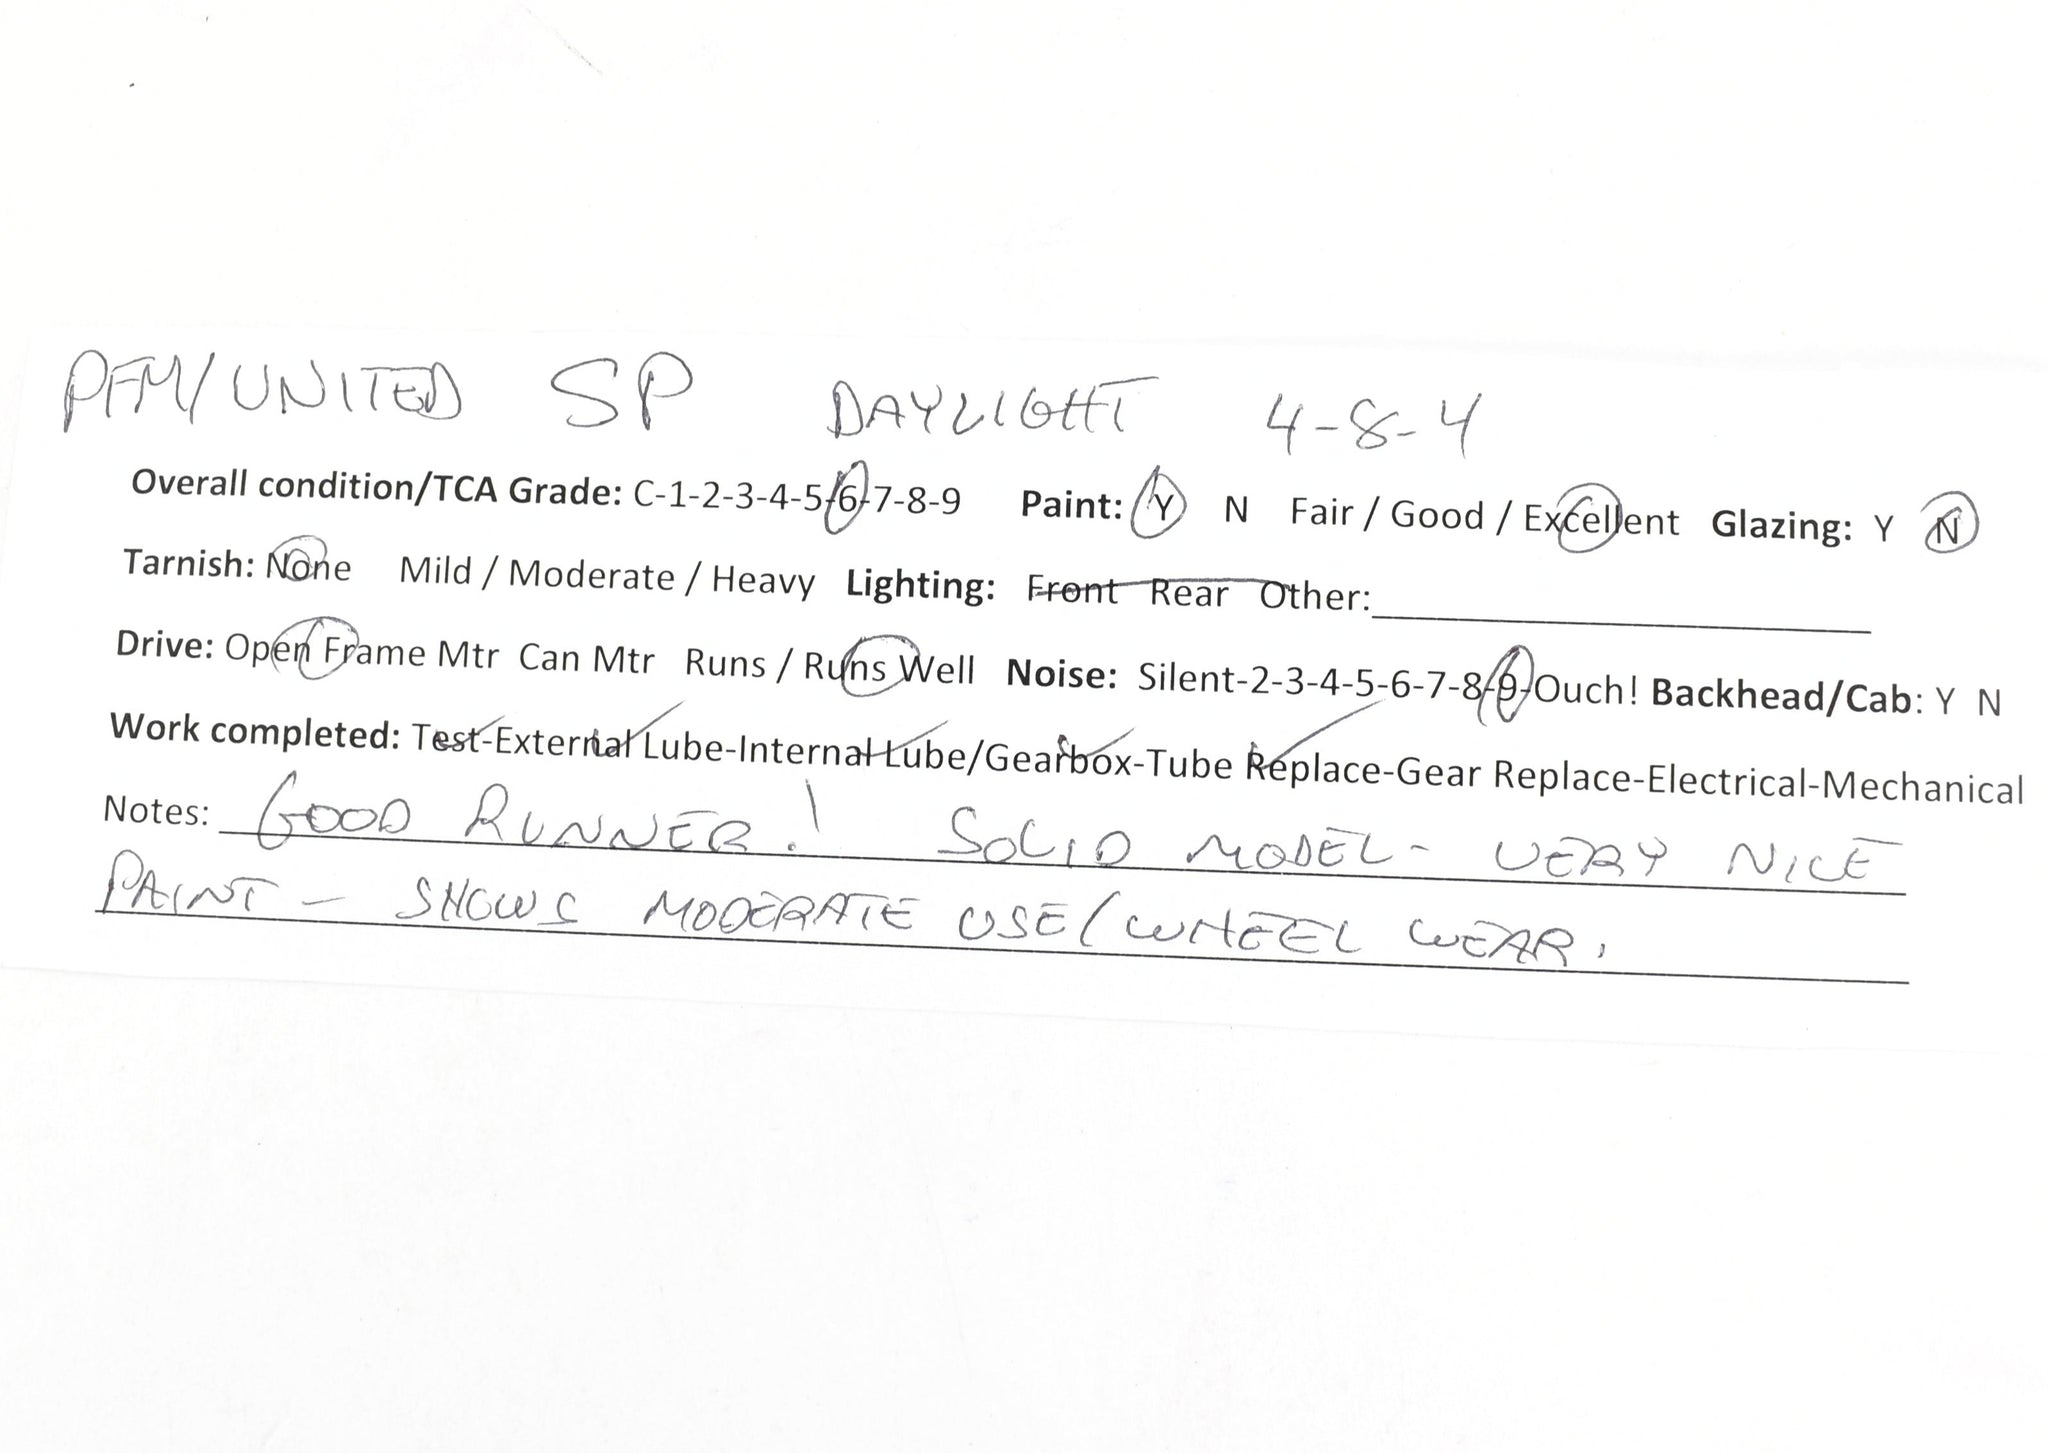 PFM/UNITED SP DAYLIGHT 4-8-4
Overall condition/TCA Grade: C-1-2-3-4-5-6-7-8-9 Paint: Y N Fair / Good / Excellent Glazing: Y N
Tarnish: None Mild / Moderate / Heavy Lighting: Front Rear Other:
Drive: Open Frame Mtr Can Mtr Runs / Runs Well Noise: Silent-2-3-4-5-6-7-8-9-Ouch! Backhead/Cab: Y N
Work completed: Test-External Lube-Internal Lube/Gearbox-Tube Replace-Gear Replace-Electrical-Mechanical
Notes: GOOD RUNNER! SOLID MODEL- VERY NICE
PAINT - SHOWS MODERATE USE/WHEEL WEAR.